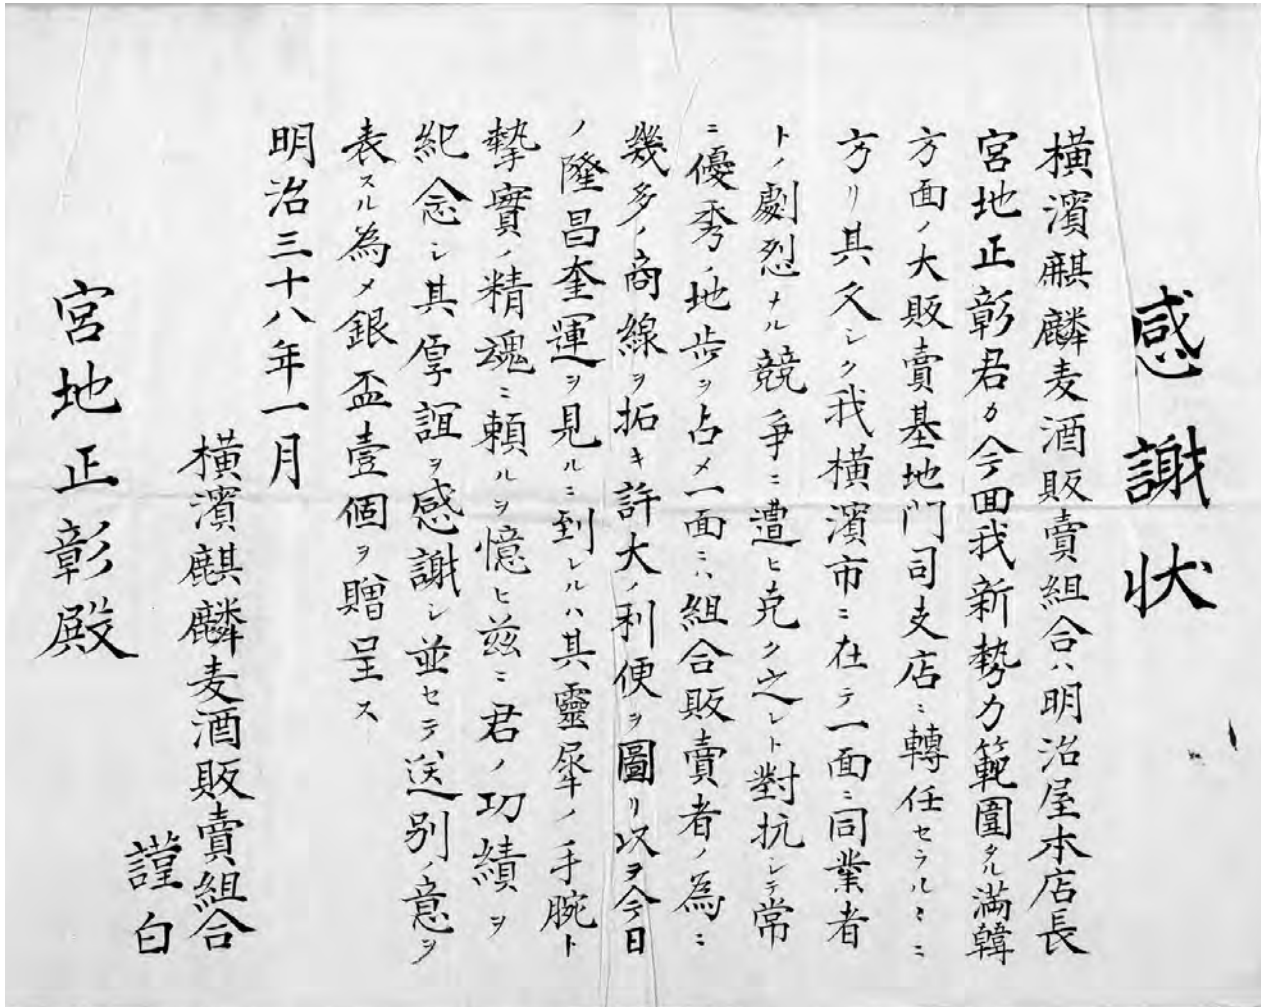 感謝状
橫濱麒麟麦酒販賣組合ハ明治屋本店長
宮地正彰君カ今回我新勢力範圍タル満韓
方面ノ大販賣基地門司支店ニ轉任セラルヽニ
方リ其久シク我橫濱市ニ在テ一面ニ同業者
トノ劇烈ナル競爭ニ遭ヒ克ク之レト對抗シテ常
ニ優秀ノ地歩ヲ占メ一面ニハ組合販賣者ノ為ニ
幾多ノ商線ヲ拓キ許大ノ利便ヲ圖リ以ヲ今日
ノ隆昌奎運ヲ見ルニ到レルハ其靈犀ノ手腕ト
摯實ノ精魂ニ頼ルヲ憶ヒ茲ニ君ノ功績ヲ
紀念シ其厚誼ヲ感謝シ並セテ送別ノ意ヲ
表スル為メ銀盃壹個ヲ贈呈ス
明治三十八年一月
橫濱麒麟麦酒販賣組合
謹白
宮地正彰殿